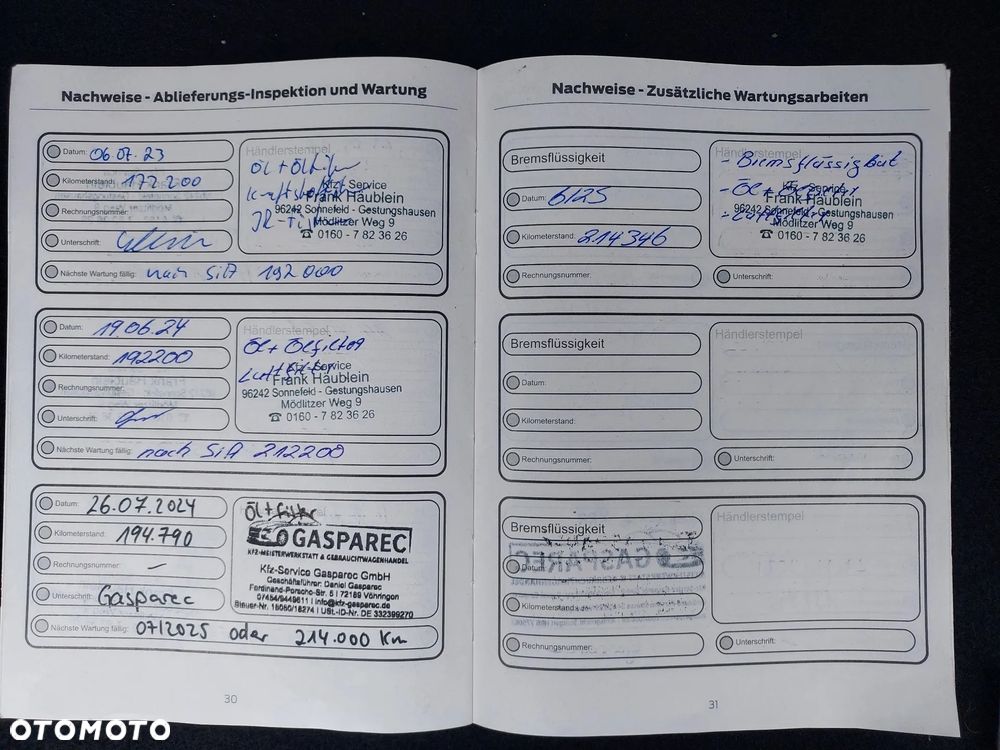 Nachweise - Ablieferungs-Inspektion und Wartung
Datum: 06.07.23
Kilometerstand: 172 200
Rechnungsnummer:
Unterschrift:
Nächste Wartung fällig: nach SiA 192 000
Öl + Ölfilter
Kfz-Service
Frank Häublein
96242 Sonnefeld - Gestungshausen
Mödlitzer Weg 9
☎ 0160 - 7 82 36 26
Datum: 19.06.24
Kilometerstand: 192200
Rechnungsnummer:
Unterschrift:
Nächste Wartung fällig: nach SiA 212200
Händlerstempel
Öl + Ölfilter
Luftfilter
Kfz-Service
Frank Häublein
96242 Sonnefeld - Gestungshausen
Mödlitzer Weg 9
☎ 0160 - 7 82 36 26
Datum: 26.07.2024
Kilometerstand: 194.790
Rechnungsnummer: –
Unterschrift: Gasparec
Nächste Wartung fällig: 07/2025 oder 214.000 Km
Öl + Filter
GASPAREC
KFZ-MEISTERWERKSTATT & GEBRAUCHTWAGENHANDEL
Kfz-Service Gasparec GmbH
Geschäftsführer: Daniel Gasparec
Ferdinand-Porsche-Str. 5 | 72189 Vöhringen
07454/9449611 | info@kfz-gasparec.de
Steuer-Nr. 15060/18274 | USt.-ID-Nr. DE 332399270
30
Nachweise - Zusätzliche Wartungsarbeiten
Bremsflüssigkeit
Datum: 6/25
Kilometerstand: 214346
Rechnungsnummer:
Händlerstempel
- Bremsflüssigkeit
- Öl + Ölfilter
Kfz-Service
Frank Häublein
96242 Sonnefeld - Gestungshausen
Mödlitzer Weg 9
☎ 0160 - 7 82 36 26
Unterschrift:
Bremsflüssigkeit
Datum:
Kilometerstand:
Rechnungsnummer:
Händlerstempel
Unterschrift:
Bremsflüssigkeit
Datum:
Kilometerstand:
Rechnungsnummer:
Händlerstempel
Unterschrift:
GASPAREC
31
OTOMOTO